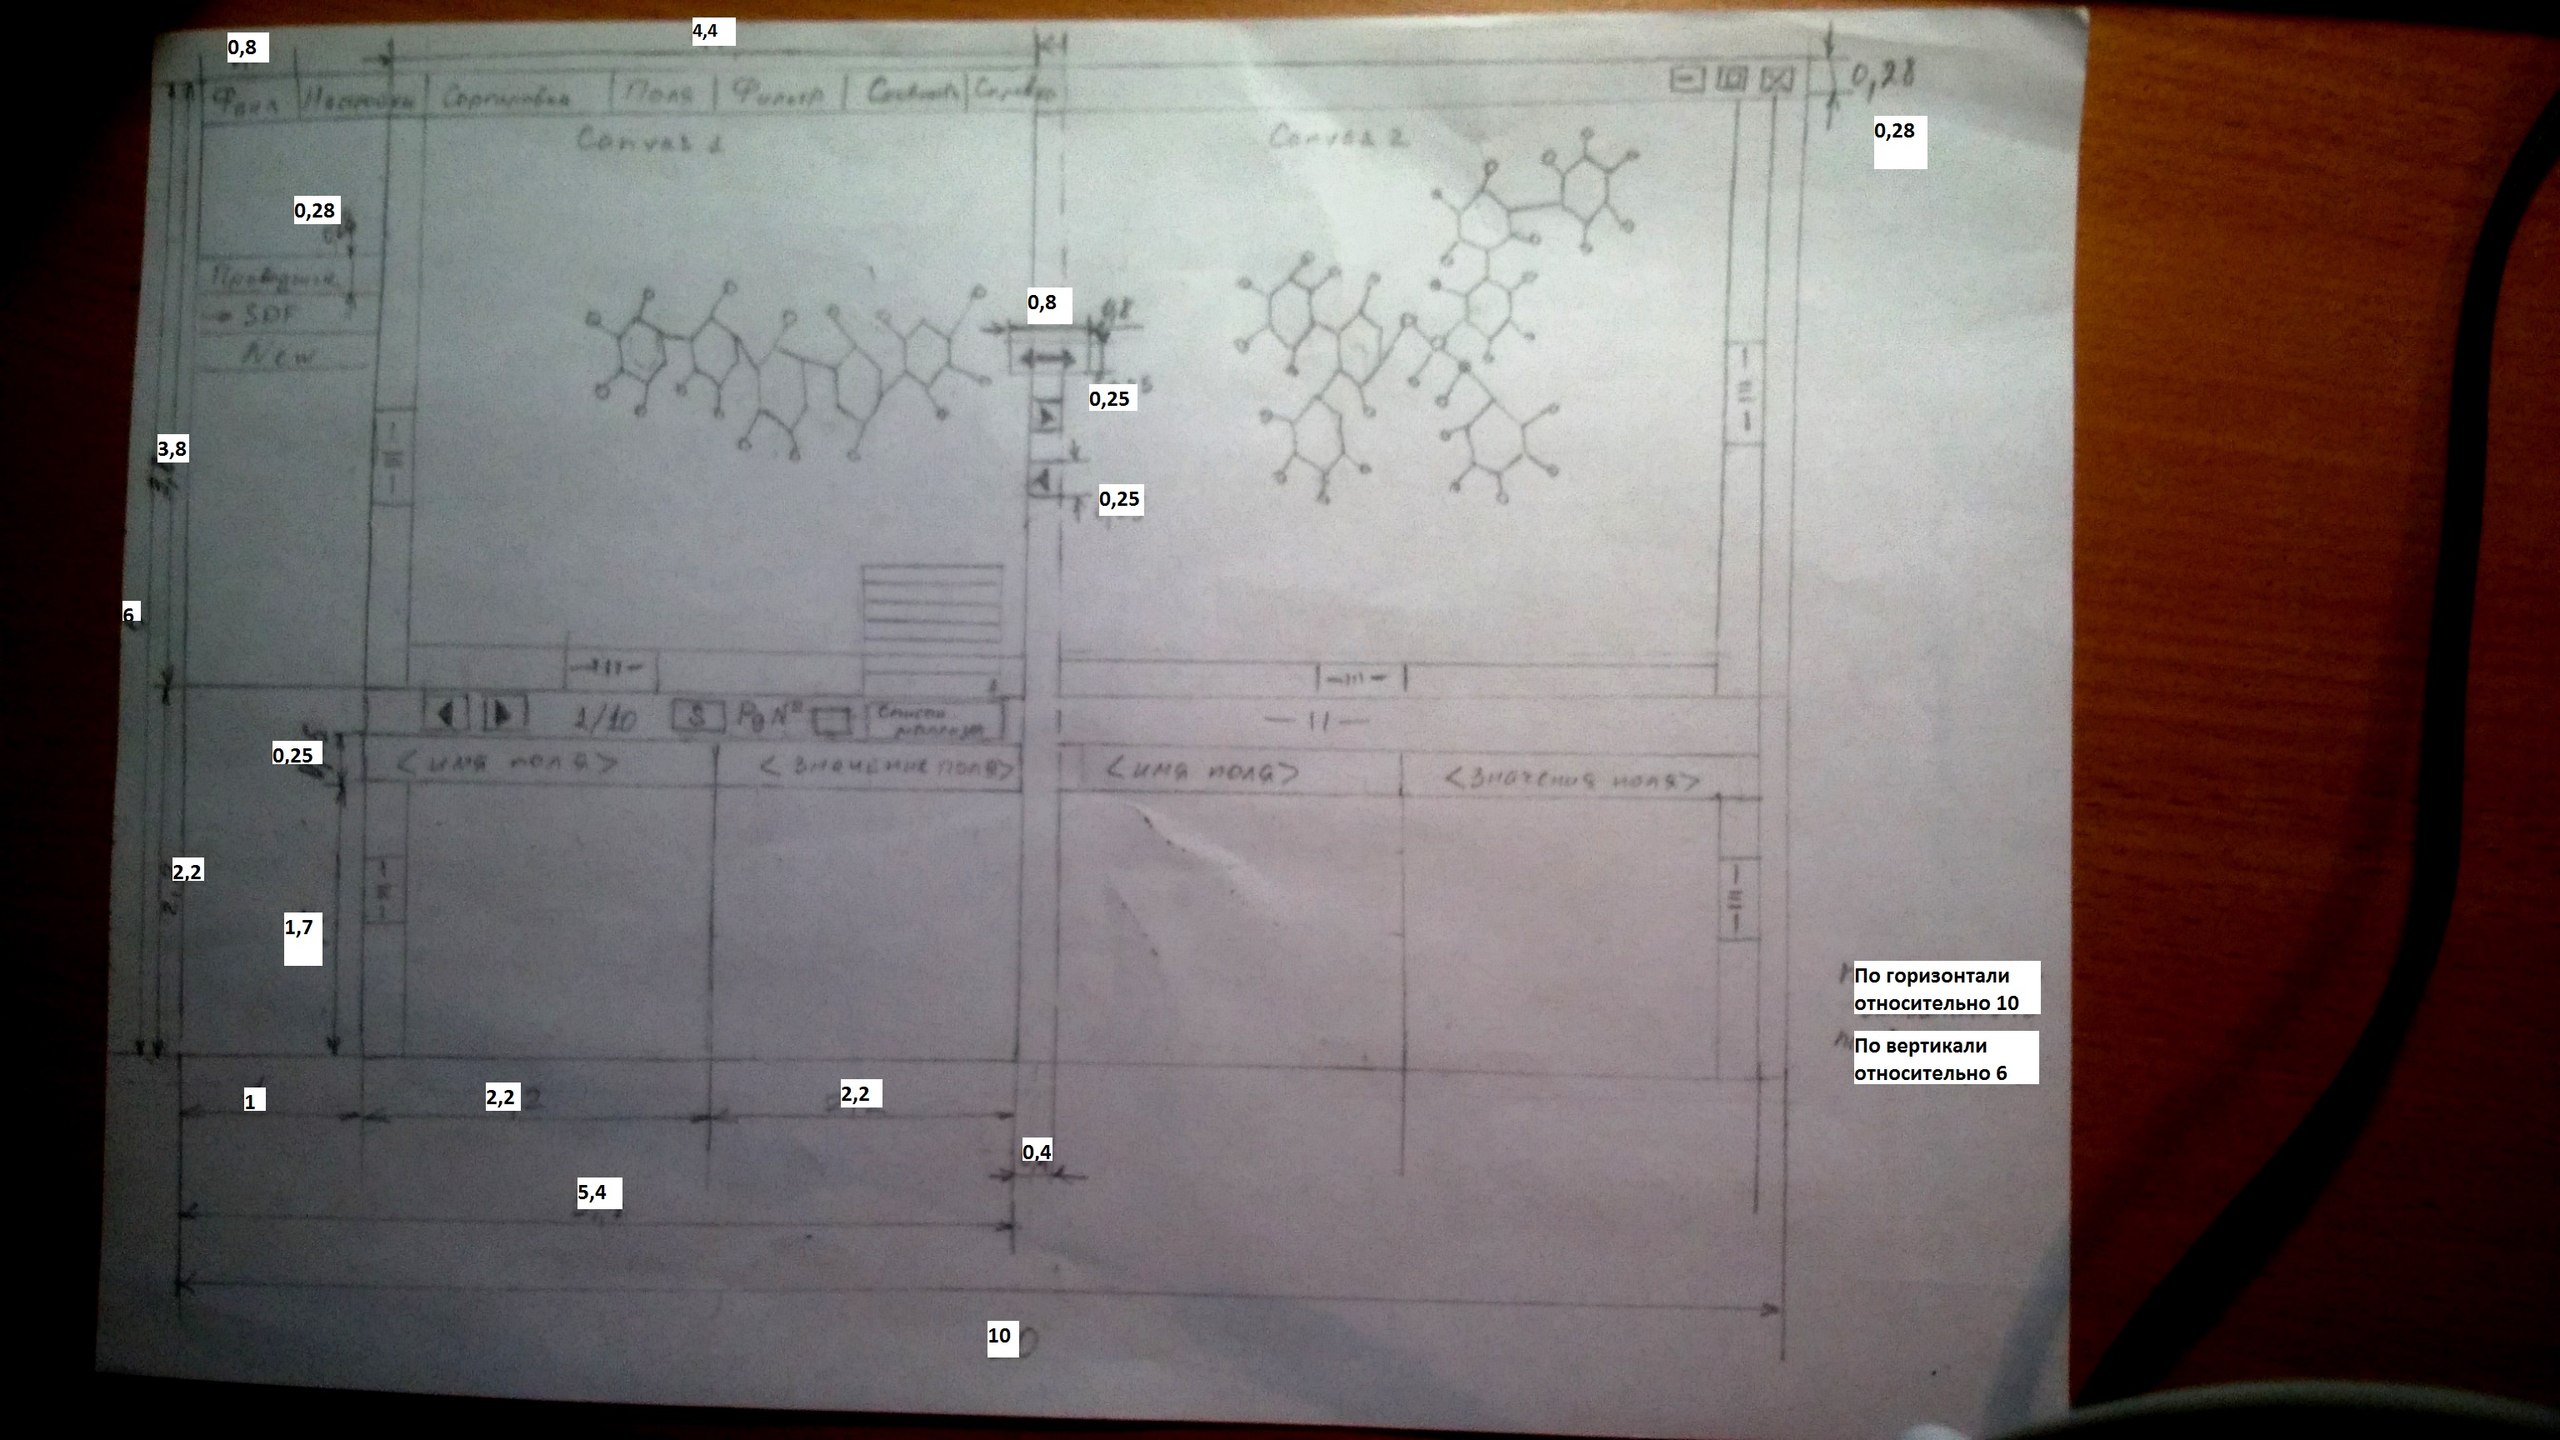 0,8
4,4
0,28
Файл Настройки Сортировка Поля Фильтр
0,28
Canvas 1
Canvas 2
0,28
Проводник
SDF
New
0,8
0,8
0,25
3,8
0,25
6
1/10 S № Список
— 11 —
0,25
<имя поля> <значение поля> <имя поля> <значения поля>
2,2
1,7
По горизонтали
относительно 10
По вертикали
относительно 6
1
2,2
2,2
0,4
5,4
10